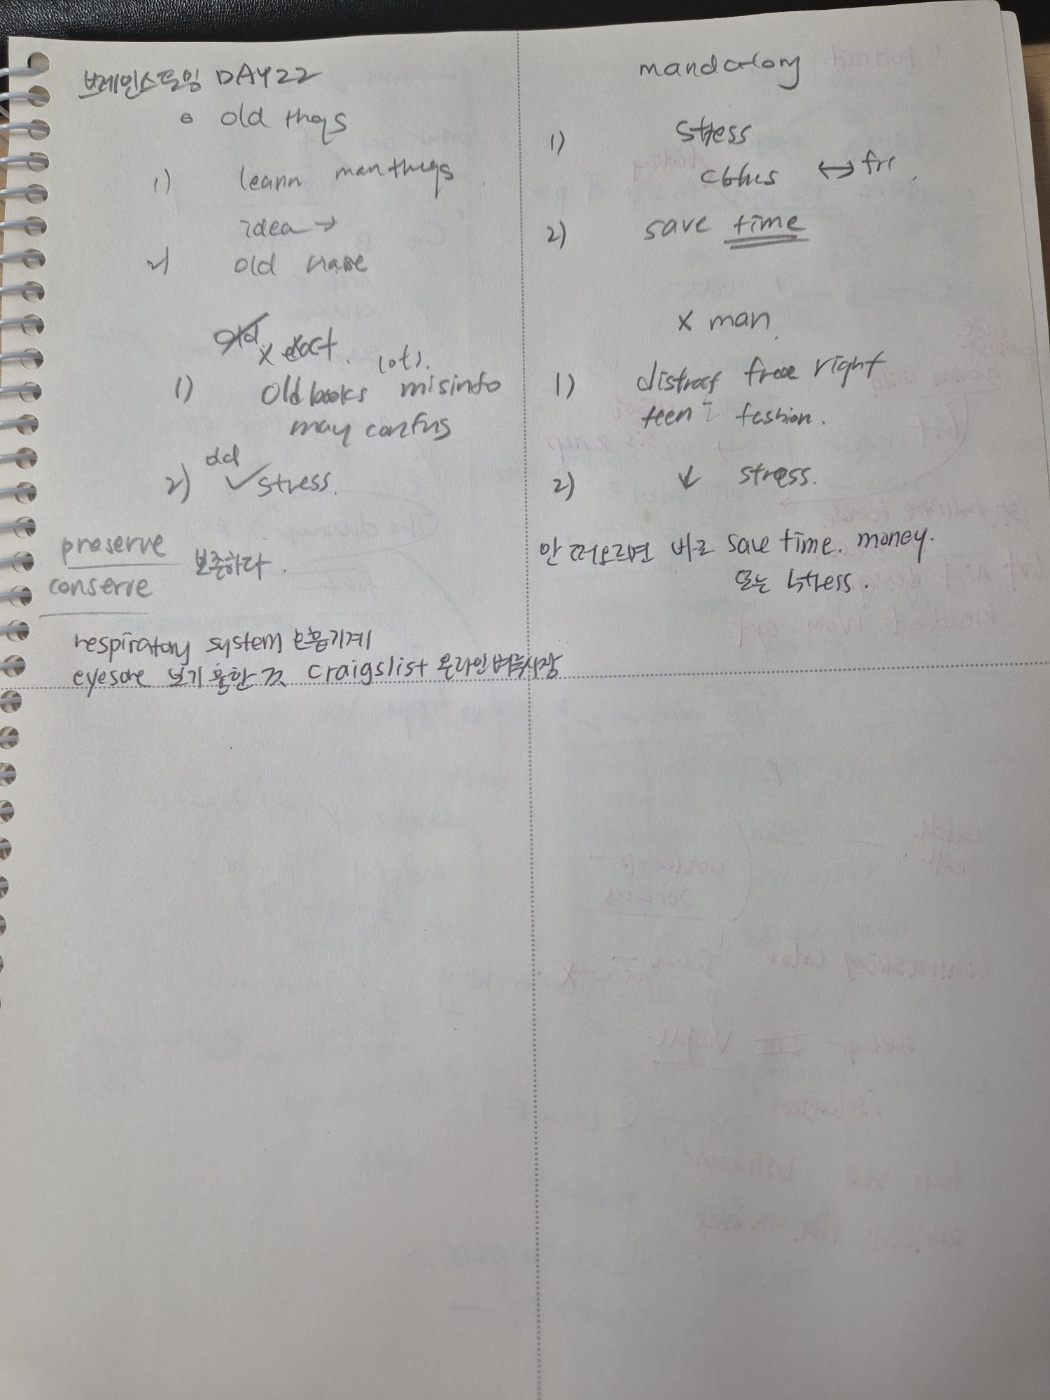 브레인스토밍 DAY22
old thgs
1) leann man thgs
idea →
2) old
x exact. lots.
1) Old books misinfo
may confus
2) old ✓stress.
preserve
conserve 보존하다.
respiratory system 호흡기계
eyesore 보기 흉한 것 craigslist 온라인 벼룩시장
mandatory
1) stress
↔ fri.
2) save time
x man
1) distract free right
teen fashion.
2) ↓ stress.
안 떠오르면 바로 save time. money.
또는 stress.